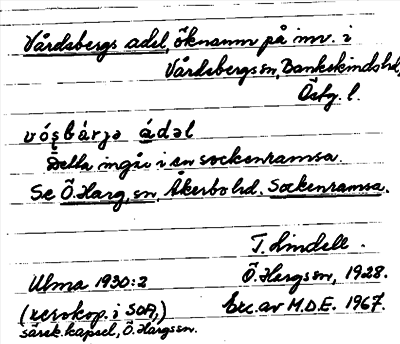 Vårdsbergs adel, öknamn på inv. i
Vårdsbergs sn, Bankekinds hd,
Östg. l.
vó̜s̩bàrjə ádəl
Detta ingår i en sockenramsa.
Se Ö. Harg, sn, Åkerbo hd. Sockenramsa.
T. Lindell.
Ulma 1930:2
Ö. Hargs sn, 1928.
(xerokop. i SOA,)
Exc. av M.D.E. 1967.
särsk. kapsel, Ö. Hargs sn.